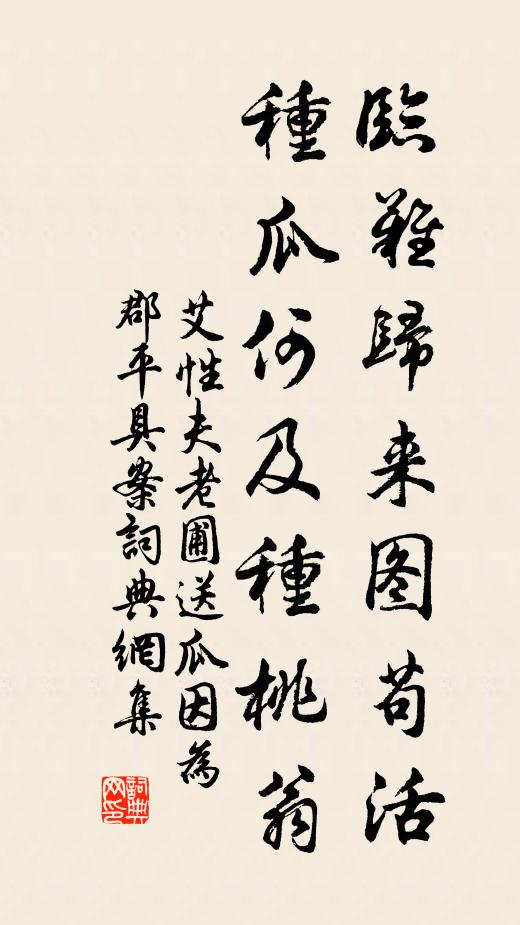 臨難歸来图苟活
種瓜何及種桃翁
艾性夫老圃送瓜因為
郡平具案詞典網集
詞典网印